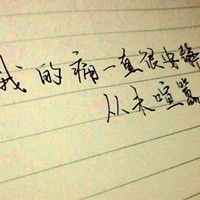 我的痛一直很安静
从未喧嚣